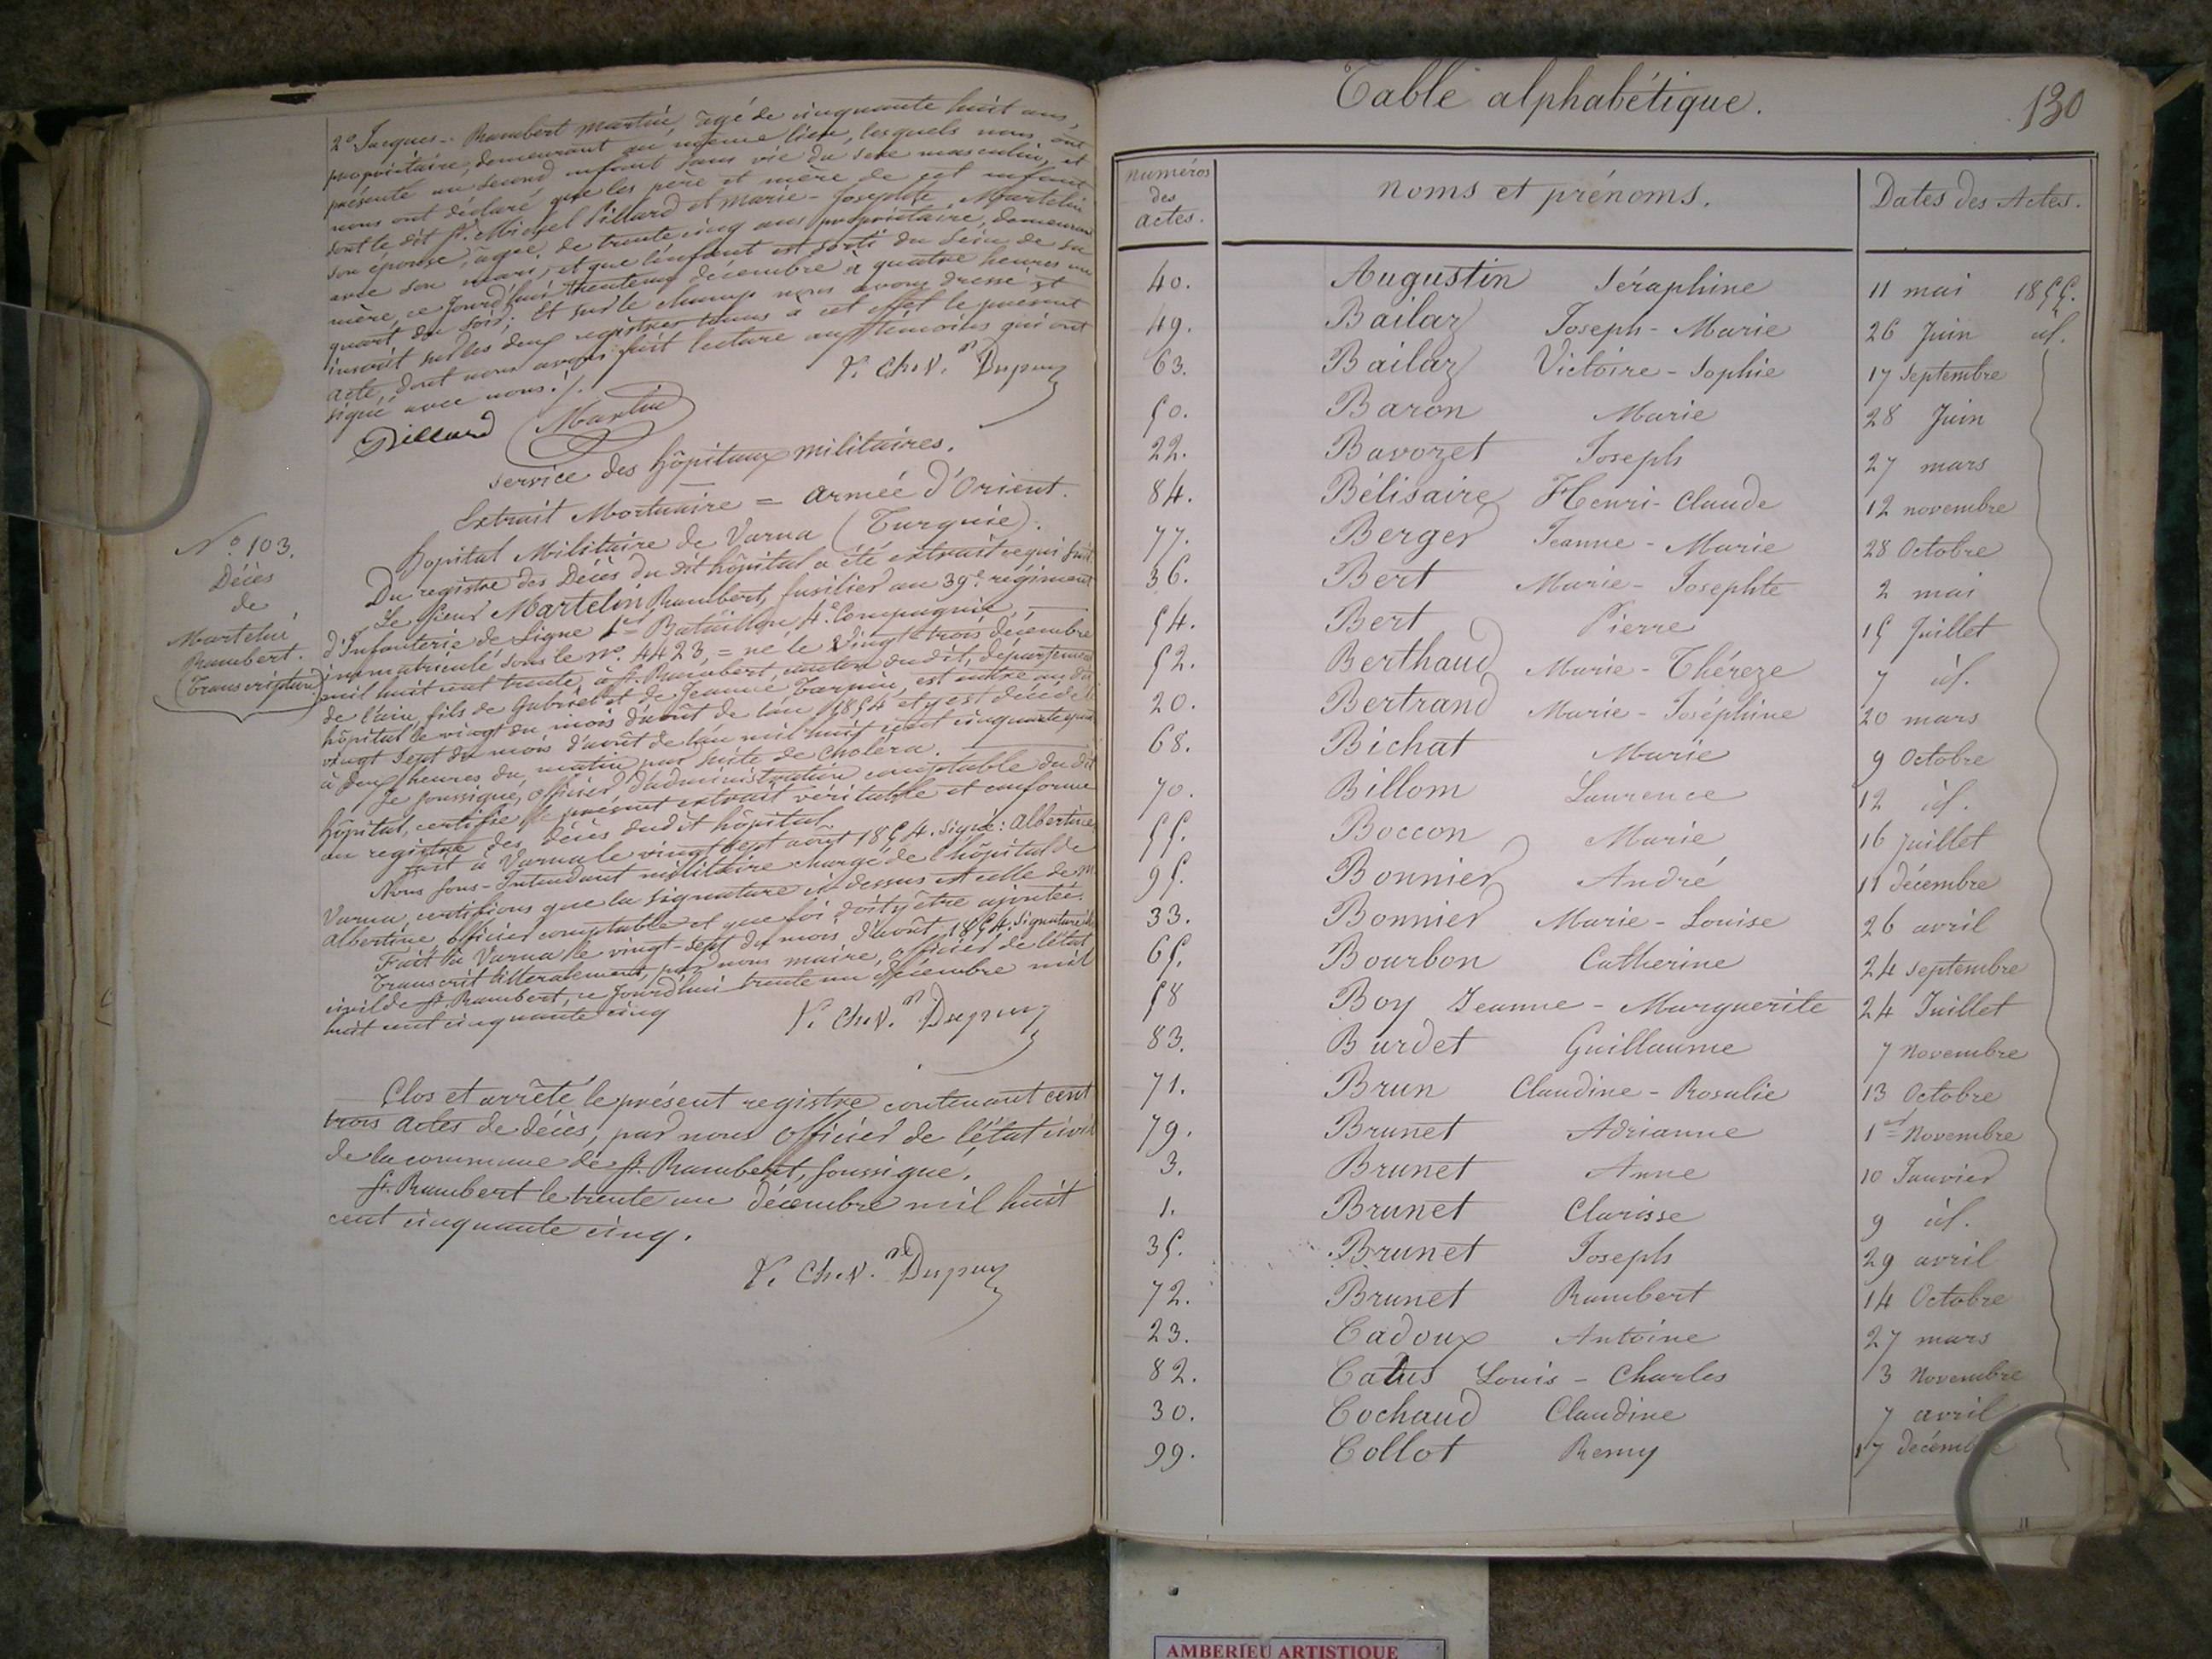 2º Jacques-Rambert Martin, âgé de cinquante huit ans,
propriétaire, demeurant au même lieu, lesquels nous ont
présenté un second enfant sans vie du sexe masculin, et
nous ont déclaré que les père et mère de cet enfant
sont le dit Sr. Michel Billard et Marie-Josephte Martelin
son épouse, âgée de trente cinq ans propriétaire, demeurant
avec son mari, et que l'enfant est sorti du sein de sa
mère, ce jourd'hui trente un décembre à quatre heures un
quart du soir; Et sur le champ nous avons dressé et
inscrit sur les deux registres tenus à cet effet le présent
acte, dont nous avons fait lecture aux témoins qui ont
signé avec nous ./.
V. Chev. Dupuy
Billard Martin
Service des hôpitaux militaires.
Extrait Mortuaire = armée d'Orient.
hopital Militaire de Varna (Turquie).
Nº 103.
Décès
de
Martelin
Rambert.
(Transcription)
Du registre des Décès du dit hôpital a été extrait ce qui suit.
Le sieur Martelin Rambert, fusilier au 39e régiment
d'Infanterie de Ligne 1er Bataillon, 4e Compagnie,
immatriculé sous le nº. 4423, = né le vingt trois décembre
mil huit cent trente, à St. Rambert, canton du dit, département
de l'ain, fils de Gabriel et de Jeanne Tarpin, est entré au dit
hôpital le vingt du mois d'août de l'an 1854 et y est décédé le
vingt sept du mois d'août de l'an mil huit cent cinquante quatre
à deux heures du matin par suite de choléra.
Je soussigné, officier d'administration comptable du dit
hôpital, certifie le présent extrait véritable et conforme
au registre des décès dudit hôpital
fait à Varna le vingt sept août 1854. signé: Albertine
Nous sous-Intendant militaire chargé de l'hôpital de
Varna, certifions que la signature ci-dessus est celle de M.
Albertine, officier comptable et que foi doit y être ajoutée.
Fait à Varna le vingt-sept du mois d'août 1854. Signature
Transcrit littéralement, par nous maire, officier de l'état
civil de St. Rambert, ce jourd'hui trente un décembre mil
huit cent cinquante cinq
V. Chev. Dupuy
Clos et arrêté le présent registre contenant cent
trois actes de décès, par nous officier de l'état civil
de la commune de St. Rambert, soussigné.
St. Rambert le trente un décembre mil huit
cent cinquante cinq.
V. Chev. Dupuy
Table alphabétique.
130
numéros des actes. noms et prénoms. Dates des Actes.
40. Augustin Séraphine 11 mai 1855.
49. Bailaz Joseph-Marie 26 Juin id.
63. Bailaz Victoire-Sophie 17 septembre
50. Baron Marie 28 Juin
22. Bavozet Joseph 27 mars
84. Bélisaire Henri-Claude 12 novembre
77. Berger Jeanne-Marie 28 Octobre
36. Bert Marie-Josephte 2 mai
54. Bert Pierre 15 Juillet
52. Berthaud Marie-Thérèze 7 id.
20. Bertrand Marie-Joséphine 20 mars
68. Bichat Marie 9 Octobre
70. Billom Laurence 12 id.
55. Boccon Marie 16 juillet
95. Bonnier André 11 décembre
33. Bonnier Marie-Louise 26 avril
65. Bourbon Catherine 24 septembre
58 Boy Jeanne-Marguerite 24 Juillet
83. Burdet Guillaume 7 Novembre
71. Brun Claudine-Rosalie 13 Octobre
79. Brunet Adrianne 1er Novembre
3. Brunet Anne 10 Janvier
1. Brunet Clarisse 9 id.
35. Brunet Joseph 29 avril
72. Brunet Rambert 14 Octobre
23. Cadoux Antoine 27 mars
82. Catus Louis-Charles 3 Novembre
30. Cochaud Claudine 7 avril
99. Collot Remy 17 décembre
AMBERIEU ARTISTIQUE